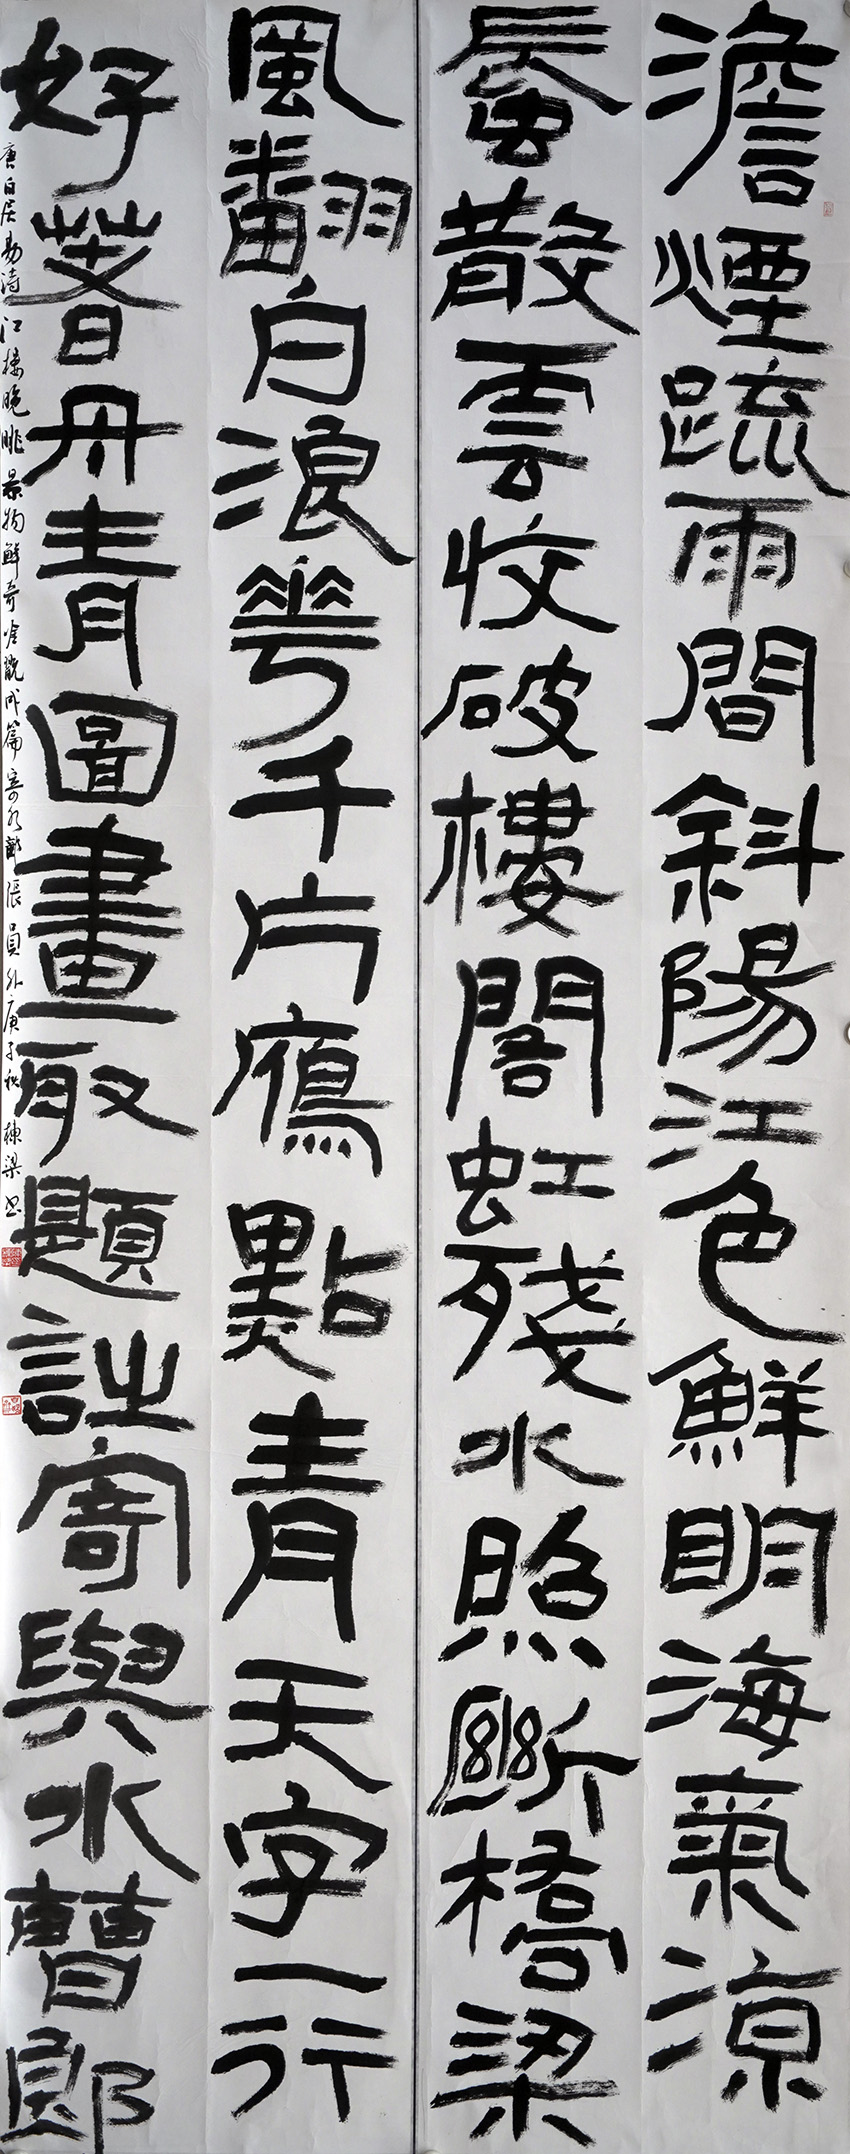 澹煙疏雨間斜陽江色鮮明海氣涼
蜃散雲收破樓閣虹殘水照斷橋梁
風翻白浪花千片鴈點青天字一行
好著丹青圖畫取題詩寄與水曹郎
唐白居易詩江樓晚眺景物鮮奇吟翫成篇寄水部張員外庚子秋 棟梁书